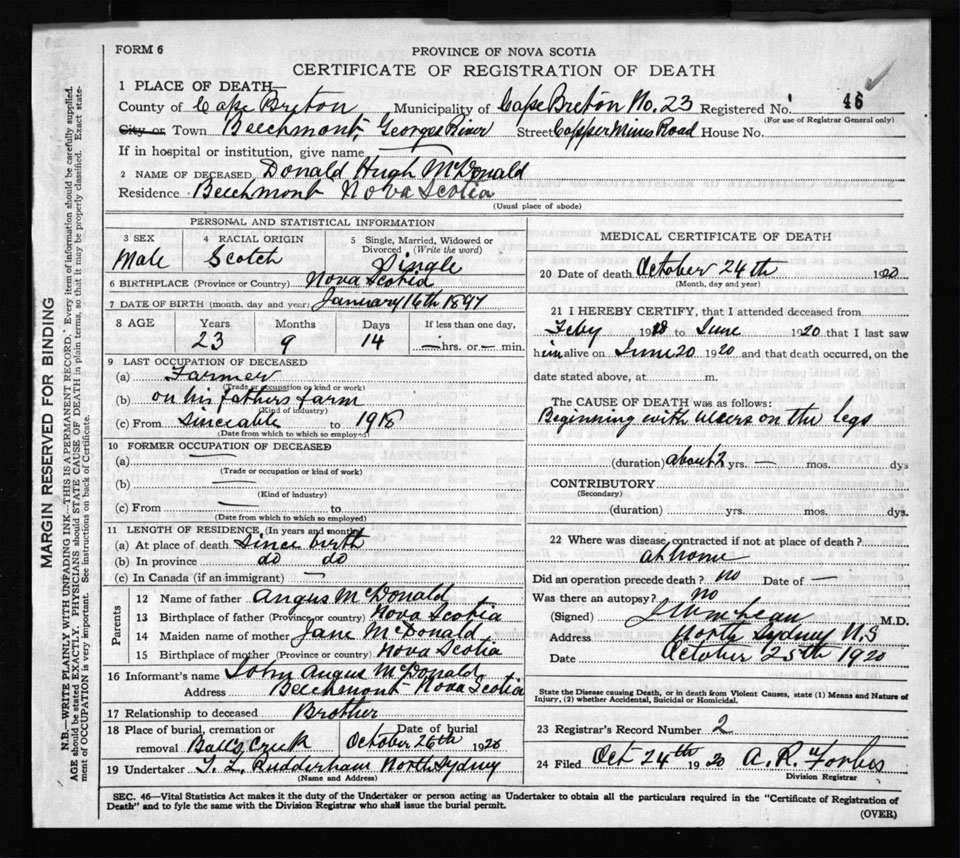 FORM 6
PROVINCE OF NOVA SCOTIA
CERTIFICATE OF REGISTRATION OF DEATH
1 PLACE OF DEATH—
County of Cape Breton Municipality of Cape Breton No. 23 Registered No. 46
(For use of Registrar General only)
City or Town Beechmont, Georges River Street Copper Mines Road House No.
If in hospital or institution, give name
2 NAME OF DECEASED Donald Hugh McDonald
Residence Beechmont Nova Scotia
(Usual place of abode)
PERSONAL AND STATISTICAL INFORMATION
3 SEX
Male
4 RACIAL ORIGIN
Scotch
5 Single, Married, Widowed or Divorced (Write the word)
Single
6 BIRTHPLACE (Province or Country) Nova Scotia
7 DATE OF BIRTH (month, day and year) January 16th 1897
8 AGE Years Months Days If less than one day,
23 9 14 — hrs. or — min.
9 LAST OCCUPATION OF DECEASED
(a) Farmer
(Trade or occupation or kind or work)
(b) on his fathers farm
(Kind of industry)
(c) From since able to 1918
(Date from which to which so employed)
10 FORMER OCCUPATION OF DECEASED
(a) —
(Trade or occupation or kind of work)
(b) —
(Kind of industry)
(c) From — to
(Date from which to which so employed)
11 LENGTH OF RESIDENCE (In years and months)
(a) At place of death since birth
(b) In province do do
(c) In Canada (if an immigrant) —
Parents
12 Name of father Angus McDonald
13 Birthplace of father (Province or country) Nova Scotia
14 Maiden name of mother Jane McDonald
15 Birthplace of mother (Province or country) Nova Scotia
16 Informant's name John Angus McDonald
Address Beechmont Nova Scotia
17 Relationship to deceased Brother
18 Place of burial, cremation or removal Balls Creek
Date of burial October 26th 1920
19 Undertaker T. L. Rudderham North Sydney
(Name and Address)
MEDICAL CERTIFICATE OF DEATH
20 Date of death October 24th 1920
(Month, day and year)
21 I HEREBY CERTIFY, that I attended deceased from
Feby 1918 to June 1920 that I last saw
him alive on June 20 1920 and that death occurred, on the
date stated above, at m.
The CAUSE OF DEATH was as follows:
Beginning with ulcers on the legs
(duration) about 2 yrs. — mos. dys
CONTRIBUTORY
(Secondary)
(duration) yrs. mos. dys.
22 Where was disease contracted if not at place of death?
at home
Did an operation precede death? no Date of —
Was there an autopsy? no
(Signed) M.D.
Address North Sydney N.S
Date October 25th 1920
State the Disease causing Death, or in death from Violent Causes, state (1) Means and Nature of Injury, (2) whether Accidental, Suicidal or Homicidal.
23 Registrar's Record Number 2
24 Filed Oct 24th 1920 A. R. Forbes
Division Registrar
SEC. 46—Vital Statistics Act makes it the duty of the Undertaker or person acting as Undertaker to obtain all the particulars required in the "Certificate of Registration of
Death" and to fyle the same with the Division Registrar who shall issue the burial permit.
(OVER)
MARGIN RESERVED FOR BINDING
N.B.—WRITE PLAINLY WITH UNFADING INK—THIS IS A PERMANENT RECORD. Every item of information should be carefully supplied.
AGE should be stated EXACTLY. PHYSICIANS should STATE CAUSE OF DEATH in plain terms, so that it may be properly classified. Exact statement of OCCUPATION is very important. See instructions on back of Certificate.